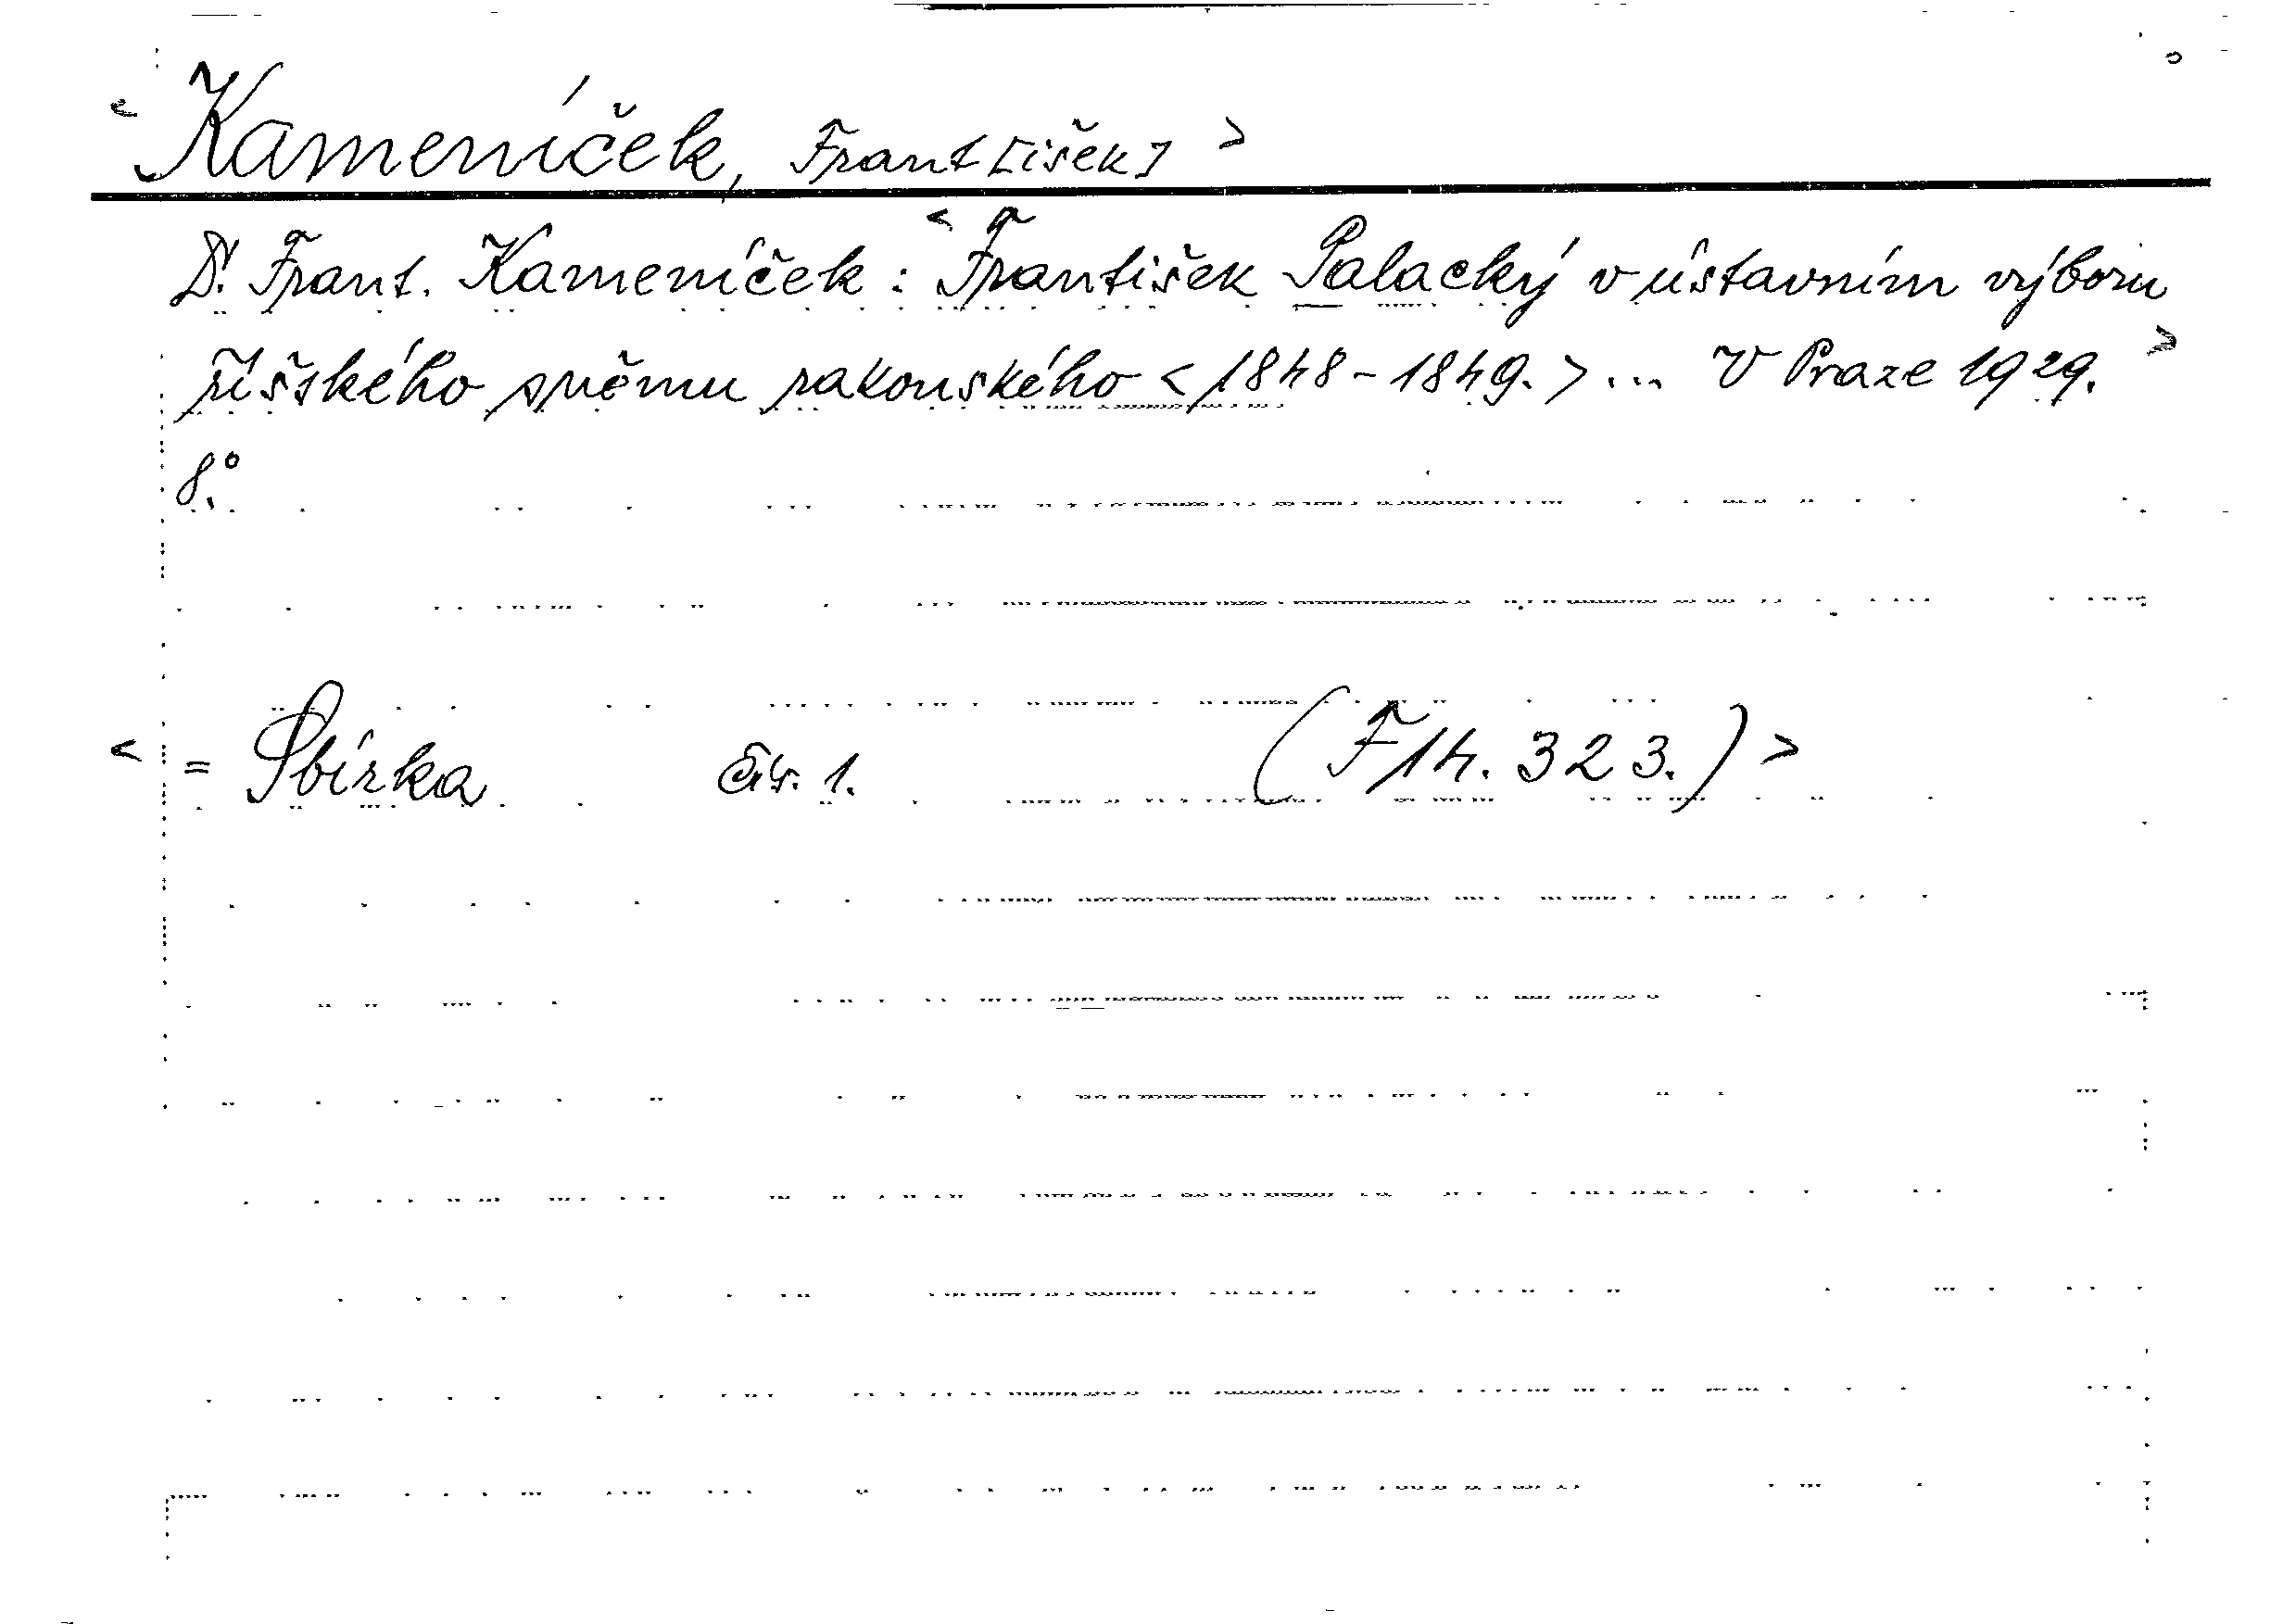 < Kameníček, Frant[išek] >
Dr. Frant. Kameníček: < František Palacký v ústavním výboru
říšského sněmu rakouského <1848-1849.> ... V Praze 1929. >
8.°
< = Sbírka Čís. 1. (F 14. 323.) >